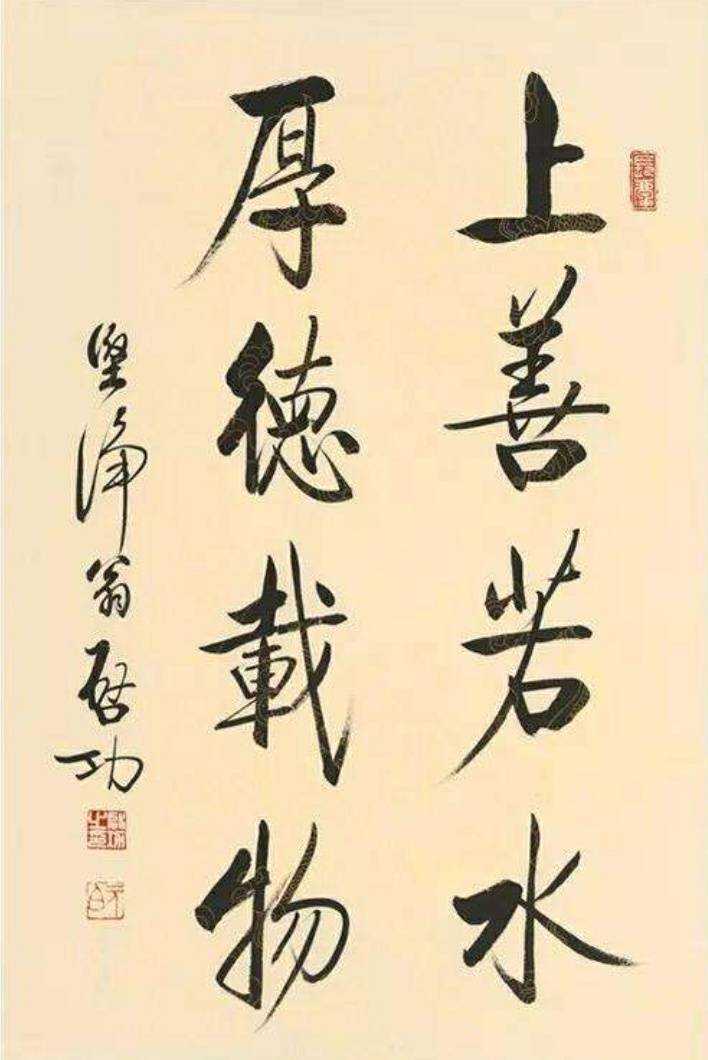 上善若水
厚德載物
堅淨翁啓功